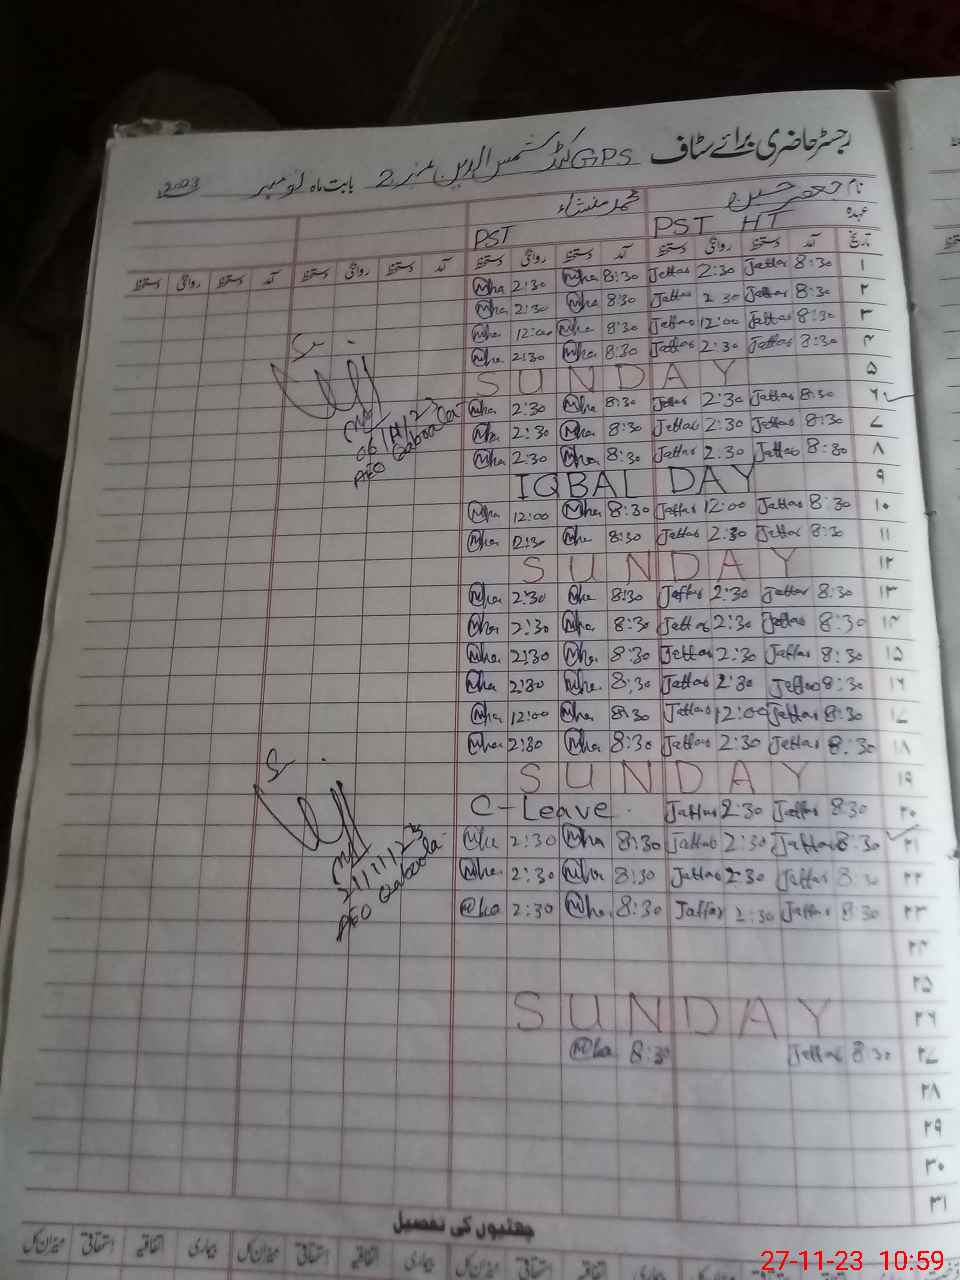 رجسٹر حاضری برائے سٹاف GPS شمس الدین نمبر 2 بابت ماہ نومبر 2023
نام جعفر حسین محمد منشاء
عہدہ PST HT PST
تاریخ آمد دستخط روانگی دستخط آمد دستخط روانگی دستخط آمد دستخط روانگی دستخط آمد دستخط روانگی دستخط
۱ 8:30 Jaffar 2:30 Jaffar 8:30 Mha 2:30 Mha
۲ 8:30 Jaffar 2:30 Jaffar 8:30 Mha 2:30 Mha
۳ 8:30 Jaffar 12:00 Jaffar 8:30 Mha 12:00 Mha
۴ 8:30 Jaffar 2:30 Jaffar 8:30 Mha 2:30 Mha
۵ SUNDAY
۶ 8:30 Jaffar 2:30 Jaffar 8:30 Mha 2:30 Mha
06/11/23
۷ 8:30 Jaffar 2:30 Jaffar 8:30 Mha 2:30 Mha
AEO Qaboola
۸ 8:30 Jaffar 2:30 Jaffar 8:30 Mha 2:30 Mha
۹ IQBAL DAY
۱۰ 8:30 Jaffar 12:00 Jaffar 8:30 Mha 12:00 Mha
۱۱ 8:30 Jaffar 2:30 Jaffar 8:30 Mha 2:30 Mha
۱۲ SUNDAY
۱۳ 8:30 Jaffar 2:30 Jaffar 8:30 Mha 2:30 Mha
۱۴ 8:30 Jaffar 2:30 Jaffar 8:30 Mha 2:30 Mha
۱۵ 8:30 Jaffar 2:30 Jaffar 8:30 Mha 2:30 Mha
۱۶ 8:30 Jaffar 2:30 Jaffar 8:30 Mha 2:30 Mha
۱۷ 8:30 Jaffar 12:00 Jaffar 8:30 Mha 12:00 Mha
۱۸ 8:30 Jaffar 2:30 Jaffar 8:30 Mha 2:30 Mha
۱۹ SUNDAY
۲۰ 8:30 Jaffar 2:30 Jaffar C-Leave
۲۱ 8:30 Jaffar 2:30 Jaffar 8:30 Mha 2:30 Mha
21/11/23
۲۲ 8:30 Jaffar 2:30 Jaffar 8:30 Mha 2:30 Mha
AEO Qaboola
۲۳ 8:30 Jaffar 2:30 Jaffar 8:30 Mha 2:30 Mha
۲۴
۲۵
۲۶ SUNDAY
۲۷ 8:30 Jaffar 8:30 Mha
۲۸
۲۹
۳۰
۳۱
چھٹیوں کی تفصیل
اتفاقیہ استحقاقی میزان کل بیماری اتفاقیہ استحقاقی میزان کل بیماری اتفاقیہ استحقاقی میزان کل
27-11-23 10:59